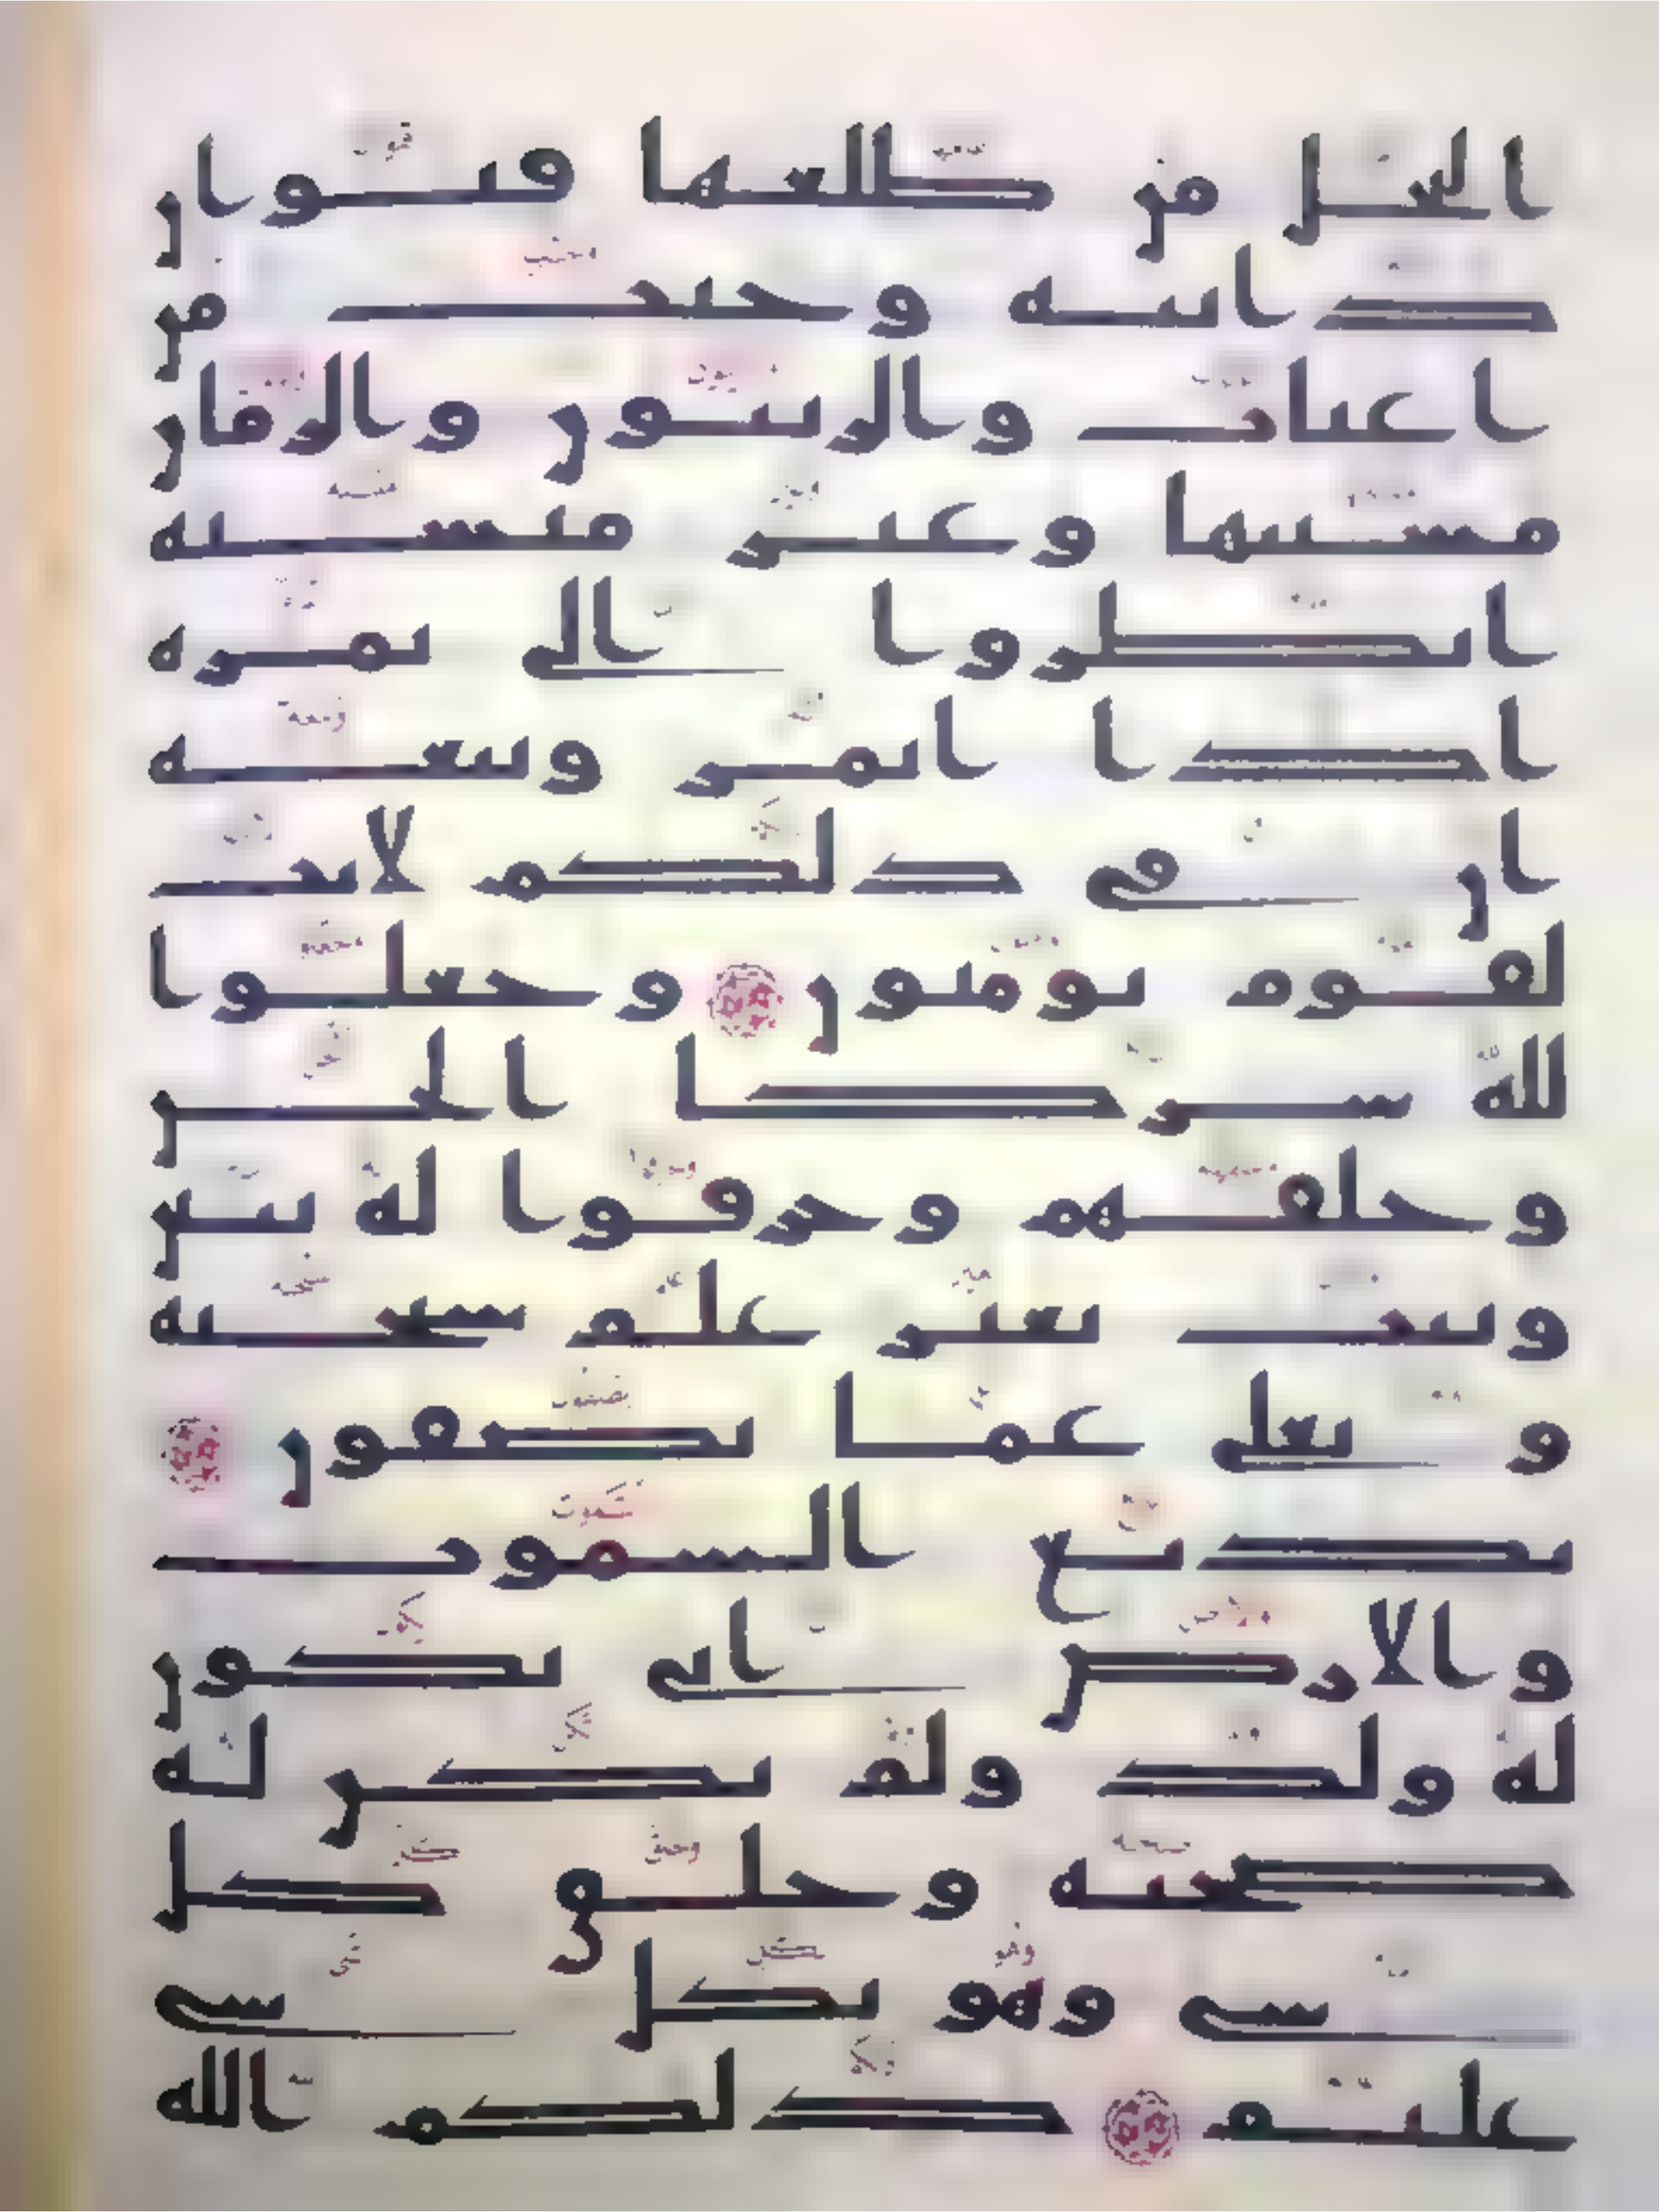 النخل من طلعها قنوان
دانية وجنت من
اعناب والزيتون والرمان
مشتبها وغير متشبه
انظروا الى ثمره
اذا اثمر وينعه
ان في ذلكم لايت
لقوم يومنون وجعلوا
لله شركا الجن
وخلقهم وخرقوا له بنين
وبنت بغير علم سبحنه
وتعلى عما يصفون
بديع السموت
والارض انى يكون
له ولد ولم تكن له
صحبة وخلق كل
شي وهو بكل شي
عليم ذلكم الله